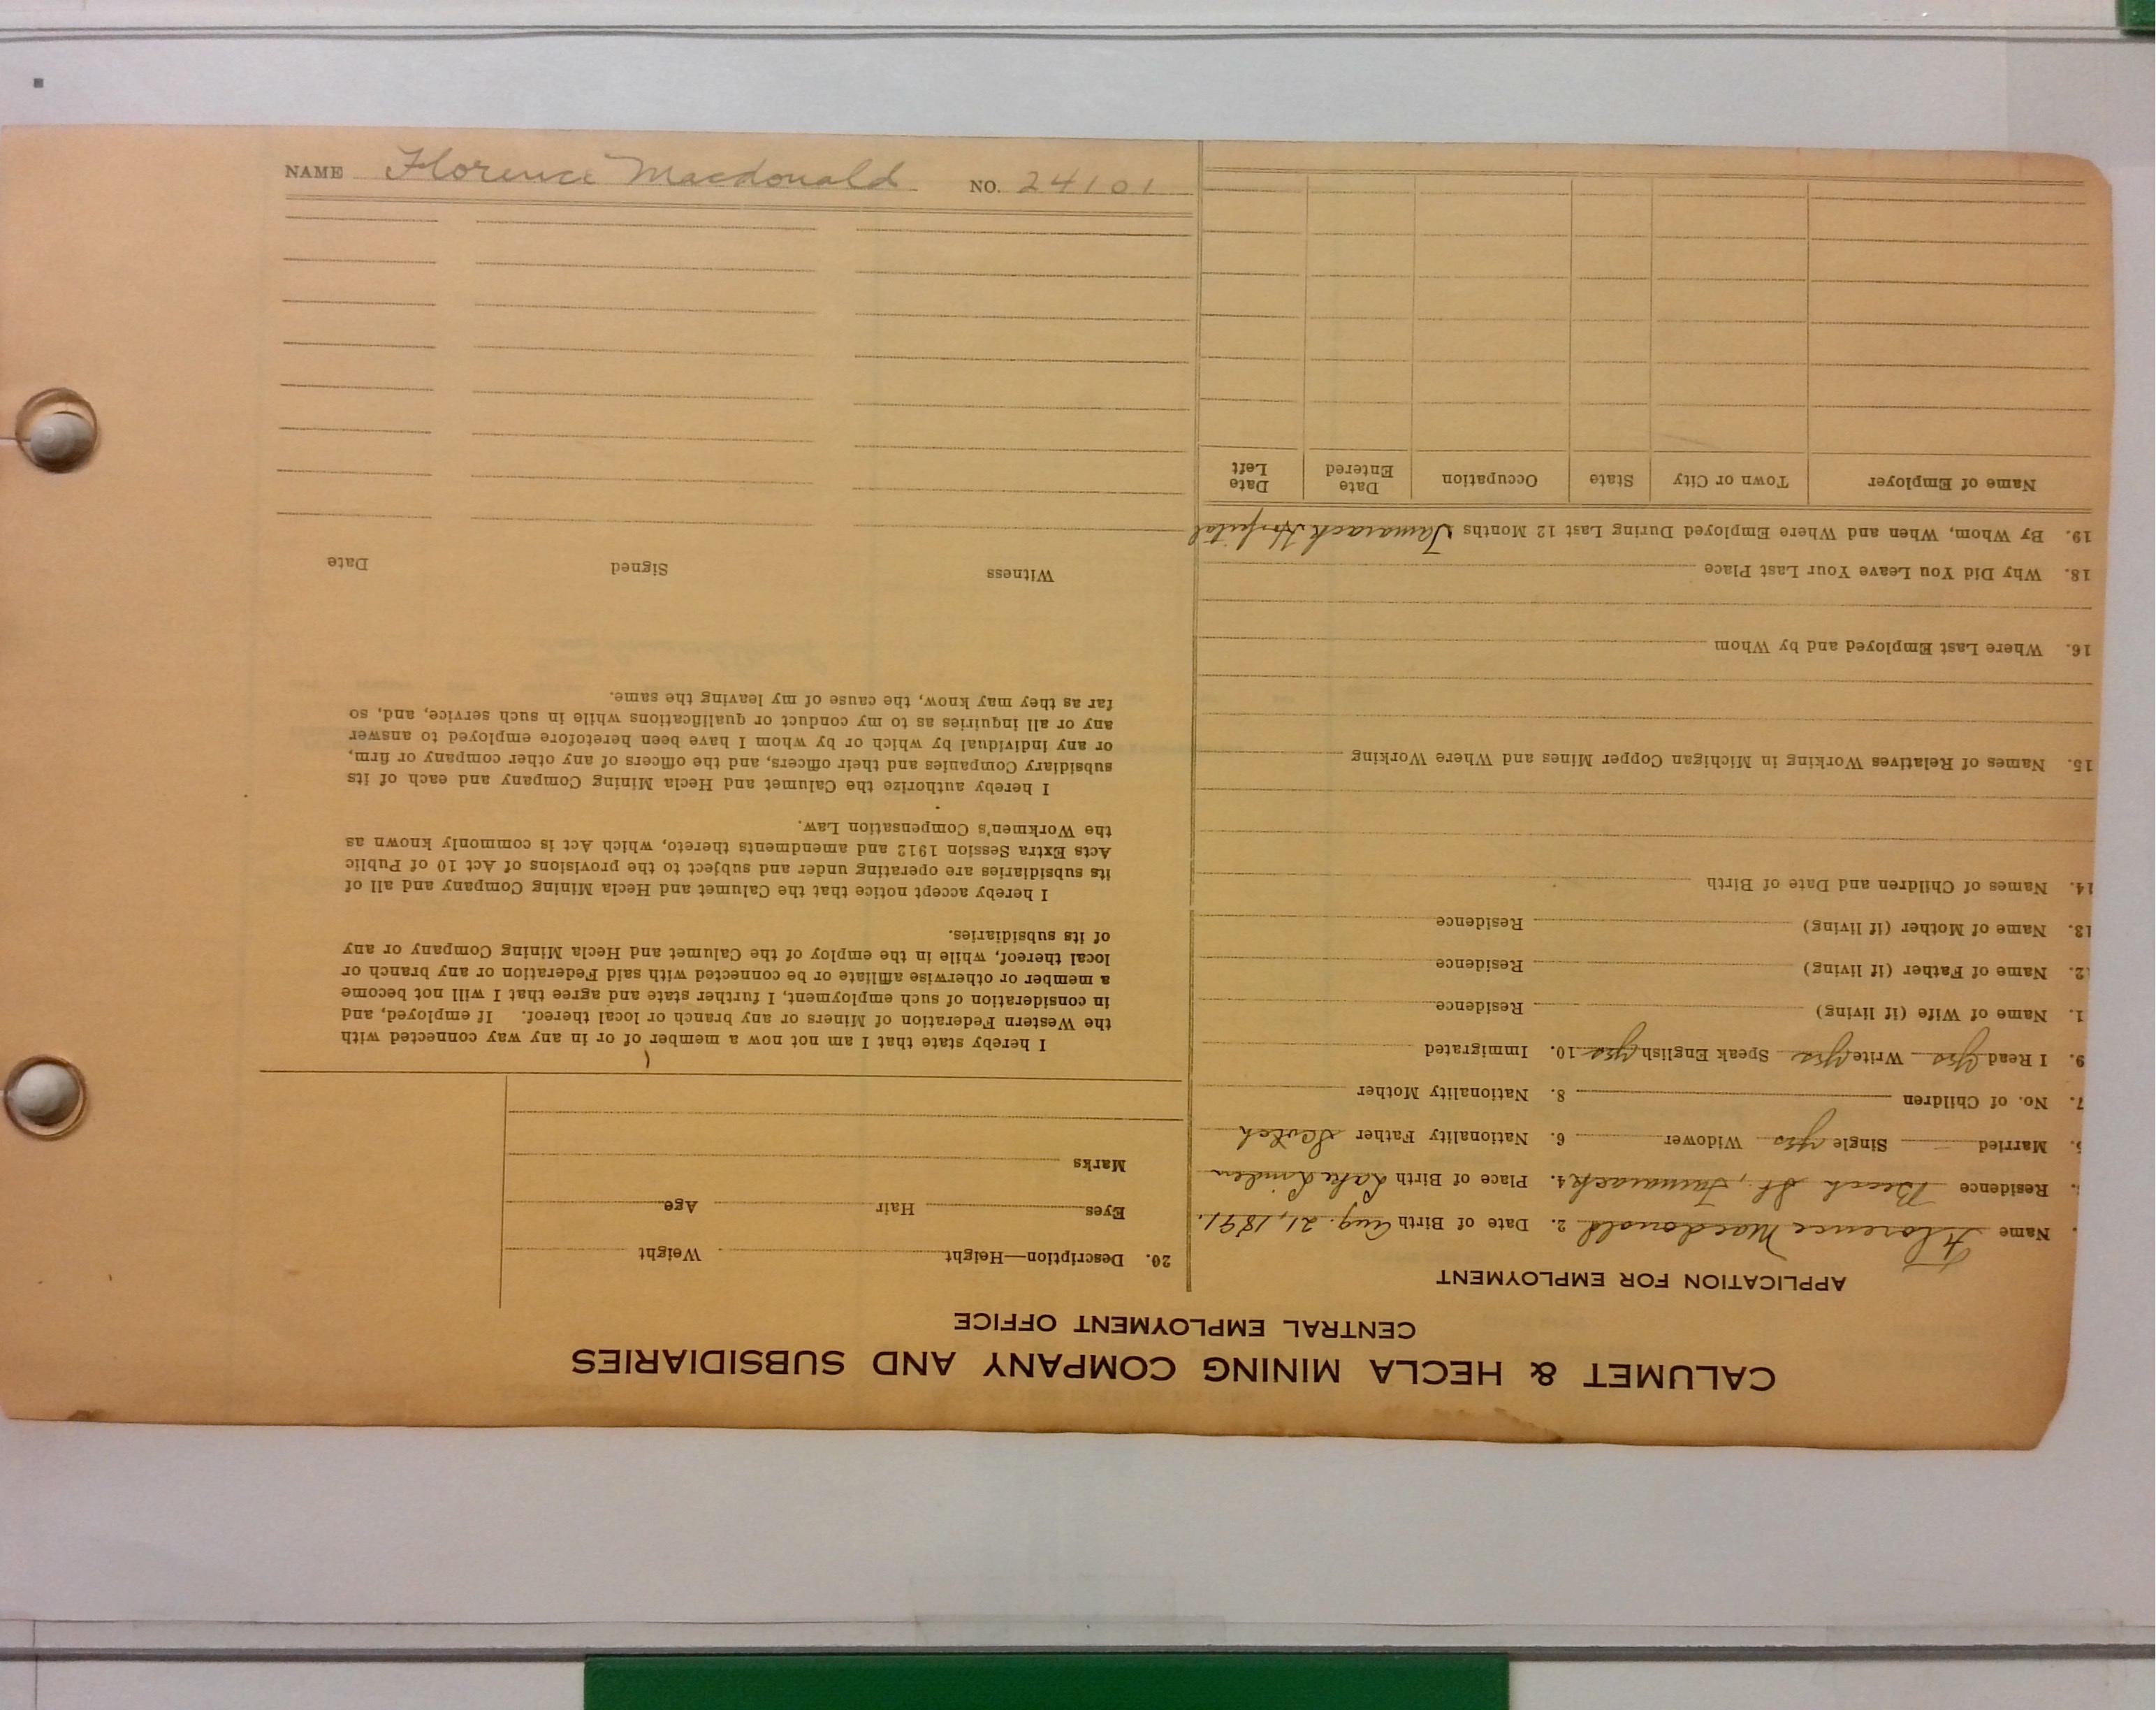 NAME Florence Macdonald NO. 24101
CALUMET & HECLA MINING COMPANY AND SUBSIDIARIES
CENTRAL EMPLOYMENT OFFICE
APPLICATION FOR EMPLOYMENT
Name Florence Macdonald 2. Date of Birth Aug. 21, 1891.
Residence Beech St., Tamarack 4. Place of Birth Lake Linden
Married Single yes Widower 6. Nationality Father Scotch
7. No. of Children 8. Nationality Mother
9. I Read yes Write yes Speak English yes 10. Immigrated
1. Name of Wife (if living) Residence
2. Name of Father (if living) Residence
13. Name of Mother (if living) Residence
14. Names of Children and Date of Birth
15. Names of Relatives Working in Michigan Copper Mines and Where Working
16. Where Last Employed and by Whom
18. Why Did You Leave Your Last Place
19. By Whom, When and Where Employed During Last 12 Months Tamarack Hospital
Name of Employer Town or City State Occupation Date Entered Date Left
20. Description—Height Weight
Eyes Hair Age
Marks
I hereby state that I am not now a member of or in any way connected with
the Western Federation of Miners or any branch or local thereof. If employed, and
in consideration of such employment, I further state and agree that I will not become
a member or otherwise affiliate or be connected with said Federation or any branch or
local thereof, while in the employ of the Calumet and Hecla Mining Company or any
of its subsidiaries.
I hereby accept notice that the Calumet and Hecla Mining Company and all of
its subsidiaries are operating under and subject to the provisions of Act 10 of Public
Acts Extra Session 1912 and amendments thereto, which Act is commonly known as
the Workmen's Compensation Law.
I hereby authorize the Calumet and Hecla Mining Company and each of its
subsidiary Companies and their officers, and the officers of any other company or firm,
or any individual by which or by whom I have been heretofore employed to answer
any or all inquiries as to my conduct or qualifications while in such service, and, so
far as they may know, the cause of my leaving the same.
Witness Signed Date